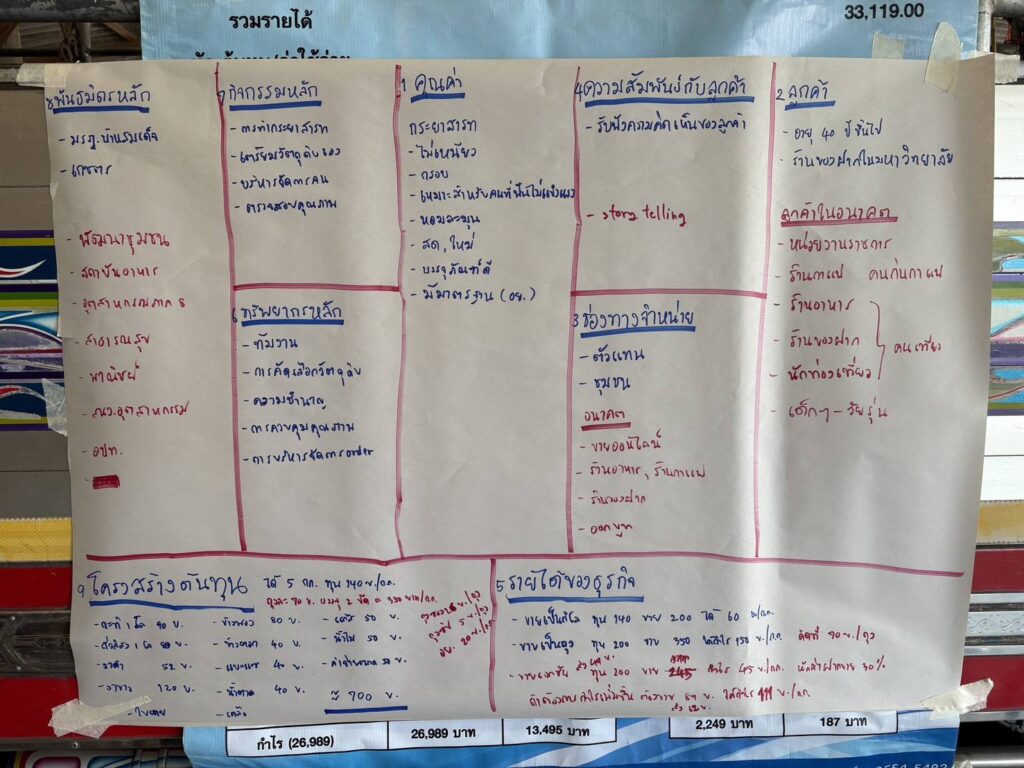 รวมรายได้
33,119.00
8 พันธมิตรหลัก
- มรภ.บ้านสมเด็จ
- เกษตร
- พัฒนาชุมชน
- สถาบันอาหาร
- อุตสาหกรรมภาค 8
- สาธารณสุข
- พาณิชย์
- สนง.อุตสาหกรรม
- อปท.
7 กิจกรรมหลัก
- การทำกระยาสารท
- เตรียมวัตถุดิบของ
- บริหารจัดการคน
- ตรวจสอบคุณภาพ
6 ทรัพยากรหลัก
- ทีมงาน
- การคัดเลือกวัตถุดิบ
- ความชำนาญ
- การควบคุมคุณภาพ
- การบริหารจัดการ order
1 คุณค่า
กระยาสารท
- ไม่เหนียว
- กรอบ
- เหมาะสำหรับคนที่ฟันไม่แข็งแรง
- หอมละมุน
- สด, ใหม่
- บรรจุภัณฑ์ดี
- มีมาตรฐาน (อย.)
4 ความสัมพันธ์กับลูกค้า
- รับฟังความคิดเห็นของลูกค้า
- story telling
3 ช่องทางจำหน่าย
- ตัวแทน
- ชุมชน
อนาคต
- ขายออนไลน์
- ร้านอาหาร, ร้านกาแฟ
- ร้านของฝาก
- ออกบูท
2 ลูกค้า
- อายุ 40 ปีขึ้นไป
- ร้านของฝากในมหาวิทยาลัย
ลูกค้าในอนาคต
- หน่วยงานราชการ
- ร้านกาแฟ คนกินกาแฟ
- ร้านอาหาร
- ร้านของฝาก
- นักท่องเที่ยว
คนเที่ยว
- เด็กๆ - วัยรุ่น
9 โครงสร้างต้นทุน
ได้ 5 กก. ทุน 140 บ./กก.
- กะทิ 1 โล 90 บ.
- ข้าวพอง 80 บ.
- 50 บ.
- ถั่วลิสง 1 โล
- ข้าวตอก 40 บ.
- น้ำไฟ 50 บ.
52 บ.
- แบะแซ 40 บ.
50 บ.
- งาขาว 120 บ.
- น้ำตาล 40 บ.
≈ 700 บ.
5 รายได้ของธุรกิจ
- ขายเป็นกิโล ทุน 140 ขาย 200 ได้ 60 บ/กก.
- ขายเป็นถุง ทุน 200 ขาย 350 ได้กำไร 150 บ./กก.
ทุน 200 ขาย 245 กำไร 45 บ./กก. หักค่าฝากขาย 30%
กำไร (26,989)
26,989 บาท
13,495 บาท
2,249 บาท
187 บาท